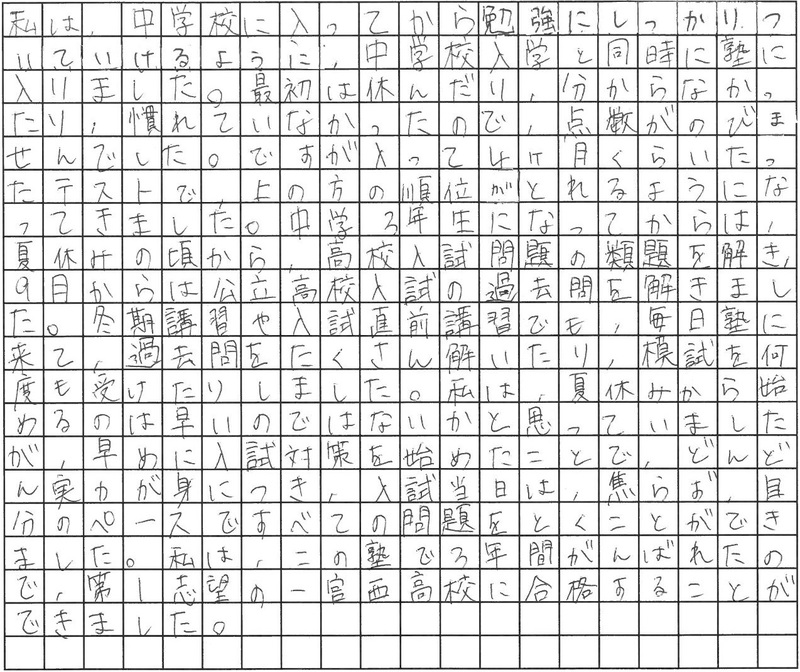 私は、中学校に入ってから勉強にしっかりつ
いていけるように、中学校入学と同時に塾に
入りました。最初は休んだり、分からなかっ
たり、慣れていなかったので、点数がのびま
せんでした。ですが入って1ヶ月くらいたっ
たテストで、上の方の順位がとれるようにな
ってきました。中学3年生になってからは、
夏休みの頃から、高校入試問題の類題を解き、
9月からは公立高校入試の過去問を解きまし
た。冬期講習や入試直前講習でも、毎日塾に
来て、過去問をたくさん解いたり、模試を何
度も受けたりしました。私は、夏休みから始
めるのは早いのではないかと思っていました
が、早めに入試対策を始めたことで、どんど
ん実力が身につき、入試当日は、焦らず、自
分のペースですべての問題をとくことができ
ました。私は、この塾で3年間がんばれたの
で、第1志望の一宮西高校に合格することが
できました。